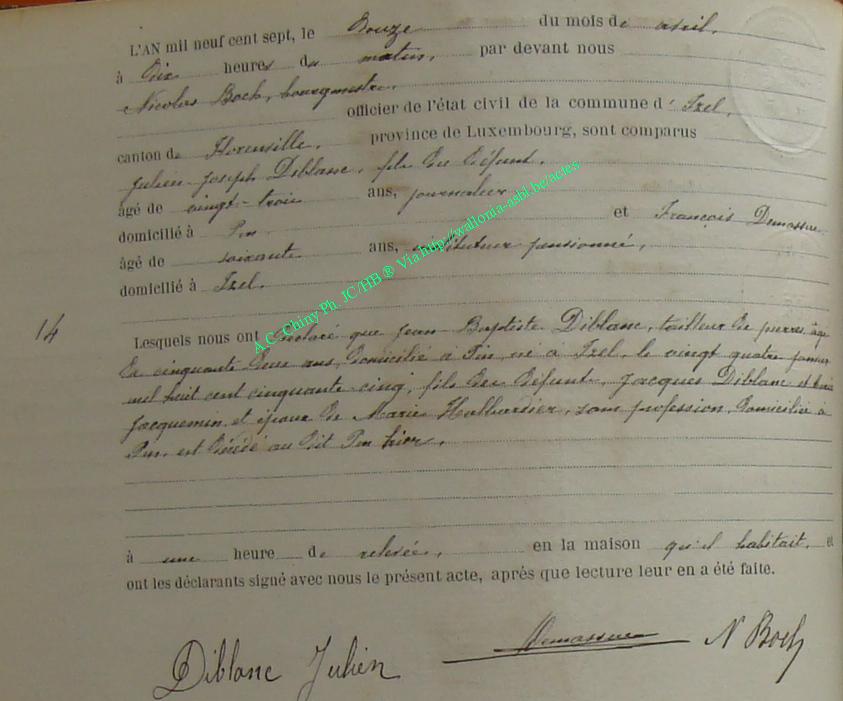 L'AN mil neuf cent sept, le Douze du mois de avril,
à Dix heures du matin, par devant nous
Nicolas Boch, bourgmestre,
officier de l'état civil de la commune d' Izel,
canton de Florenville, province de Luxembourg, sont comparus
Julien Joseph Diblanc, fils du défunt,
âgé de vingt-trois ans, journalier
domicilié à Pin et François Demasure
âgé de soixante ans, instituteur pensionné,
domicilié à Izel.
14
Lesquels nous ont déclaré que Jean Baptiste Diblanc, tailleur de pierres, âgé
de cinquante deux ans, domicilié à Pin, né à Izel, le vingt quatre janvier
mil huit cent cinquante-cinq, fils des défunts, Jacques Diblanc et
Jacquemin et époux de Marie Hallbardier, sans profession, domiciliée à
Pin, est décédé au dit Pin hier,
à une heure de relevée, en la maison qu'il habitait, et
ont les déclarants signé avec nous le présent acte, après que lecture leur en a été faite.
Diblanc Julien Demasure N Boch
A.C. Chiny Ph. JC/HB ® Via http://wallonia-asbl.be/actes